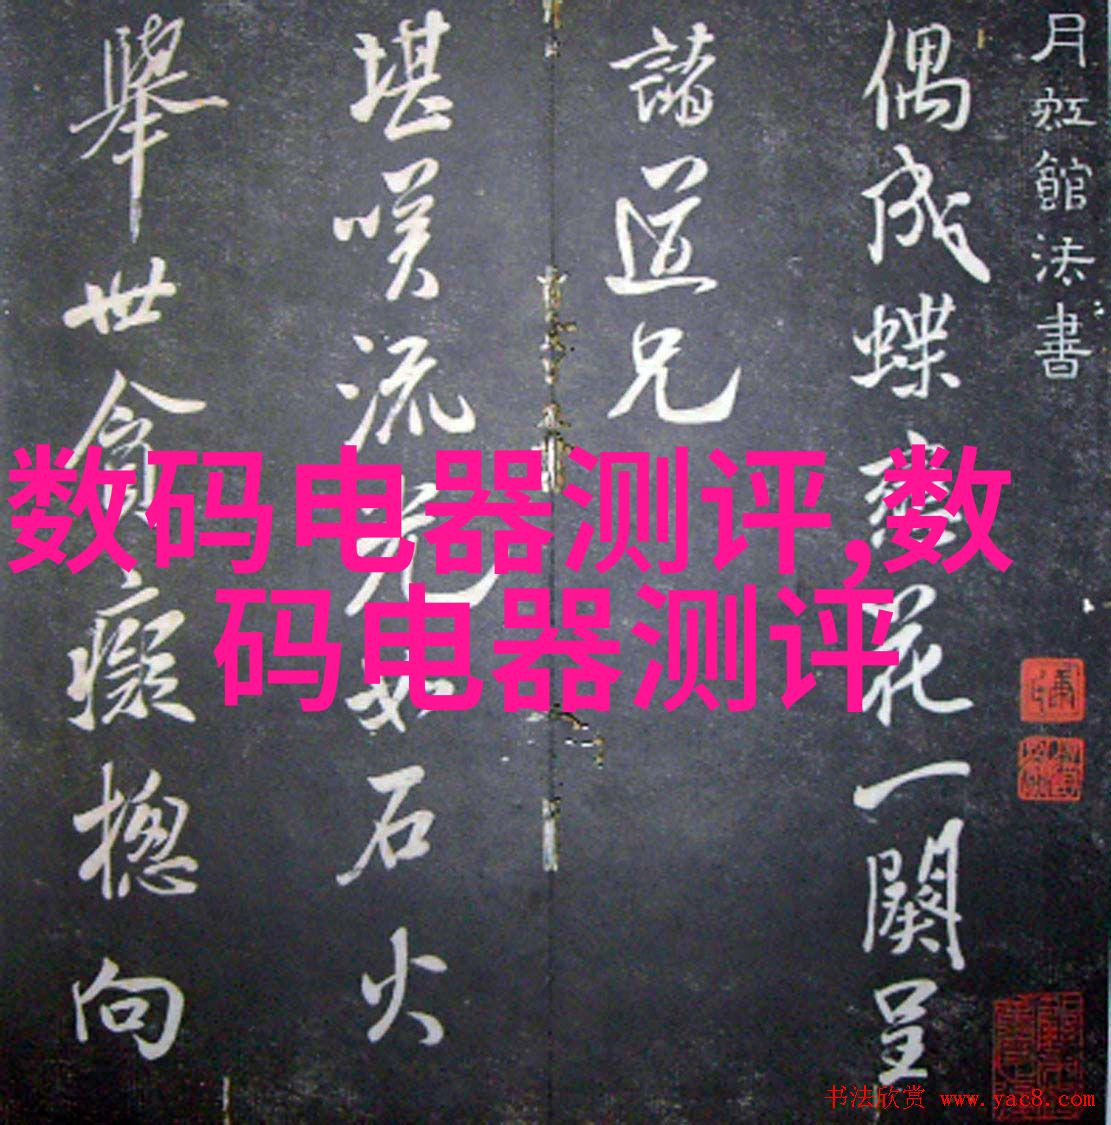 月虹館法書
偶成蝶戀花一闋呈
諸道兄
堪咲流光如石火
舉世貪癡摠向
数码电器测评,数
码电器测评
书法欣赏 www.yac8.com